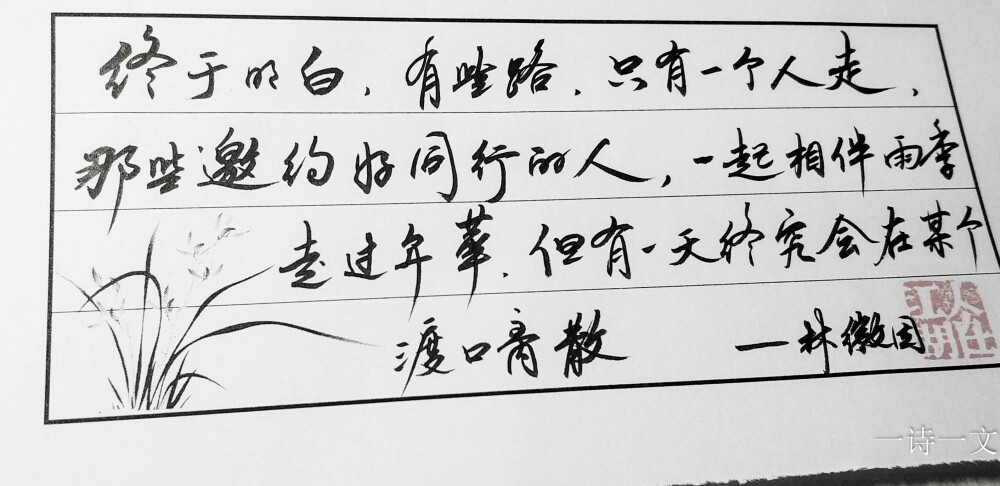 终于明白，有些路，只有一个人走，
那些邀约好同行的人，一起相伴雨季
走过年华，但有一天终究会在某个
渡口离散 —林徽因
一诗一文